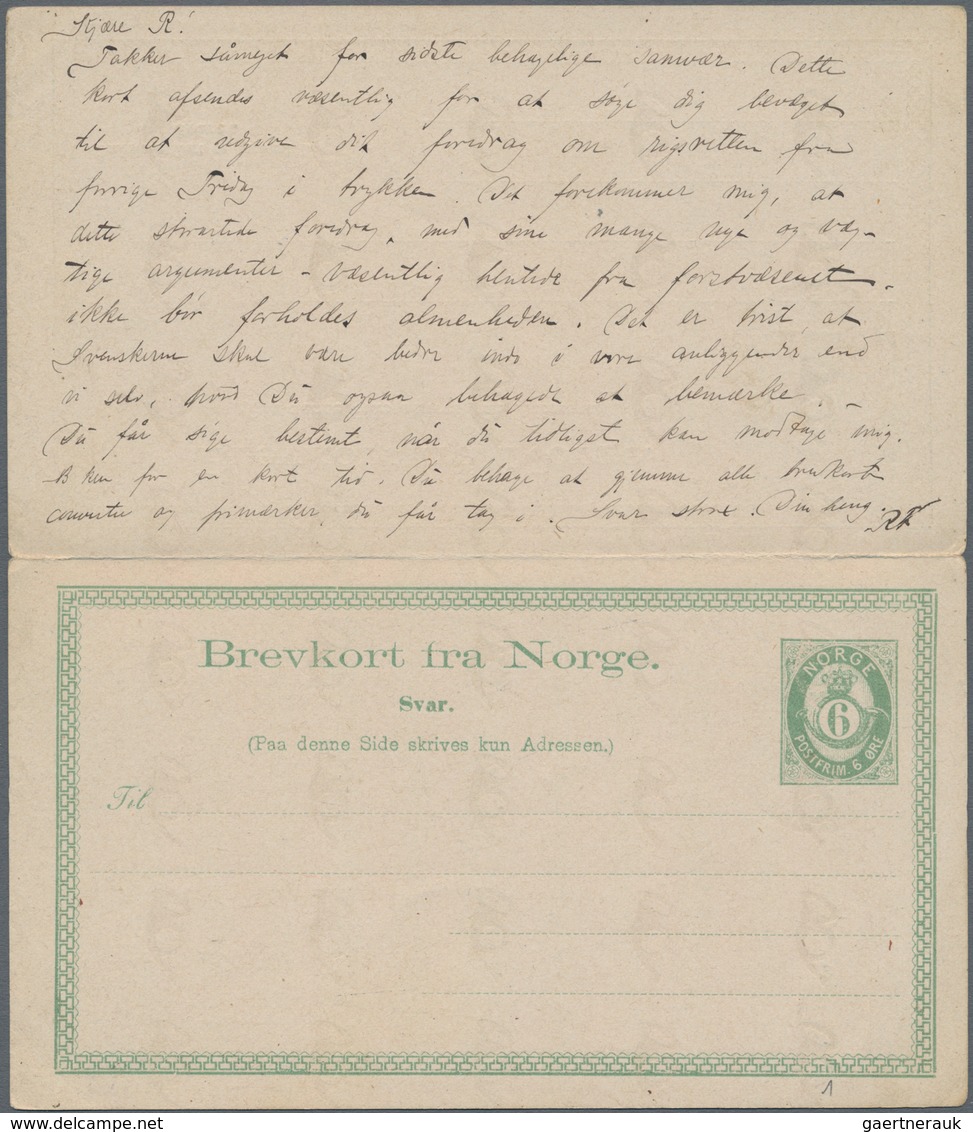 Kjære R!
Takker såmeget for sidste behagelige samvær. Dette
kort afsendes væsentlig for at søge dig bevæget
til at udgive dit foredrag om rigsretten fra
forrige Fridag i trykken. Det forekommer mig, at
dette storartede foredrag, med sine mange nye og væg-
tige argumenter – væsentlig hentede fra forstvæsenet,
ikke bør forholdes almenheden. Det er trist, at
Svenskerne skal være bedre inde i vore anliggender end
vi selv, hvad Du ogsaa behagede at bemærke. –
Du får sige bestemt, når du tidligst kan modtage mig.
for en kort tid. Du behage at gjemme alle brevkort
og frimærker, du får tag i. Svar strax. Din heng.
RF
Brevkort fra Norge.
Svar.
(Paa denne Side skrives kun Adressen.)
NORGE
6
POSTFRIM. 6 ØRE
Til
1
gaertnerauk